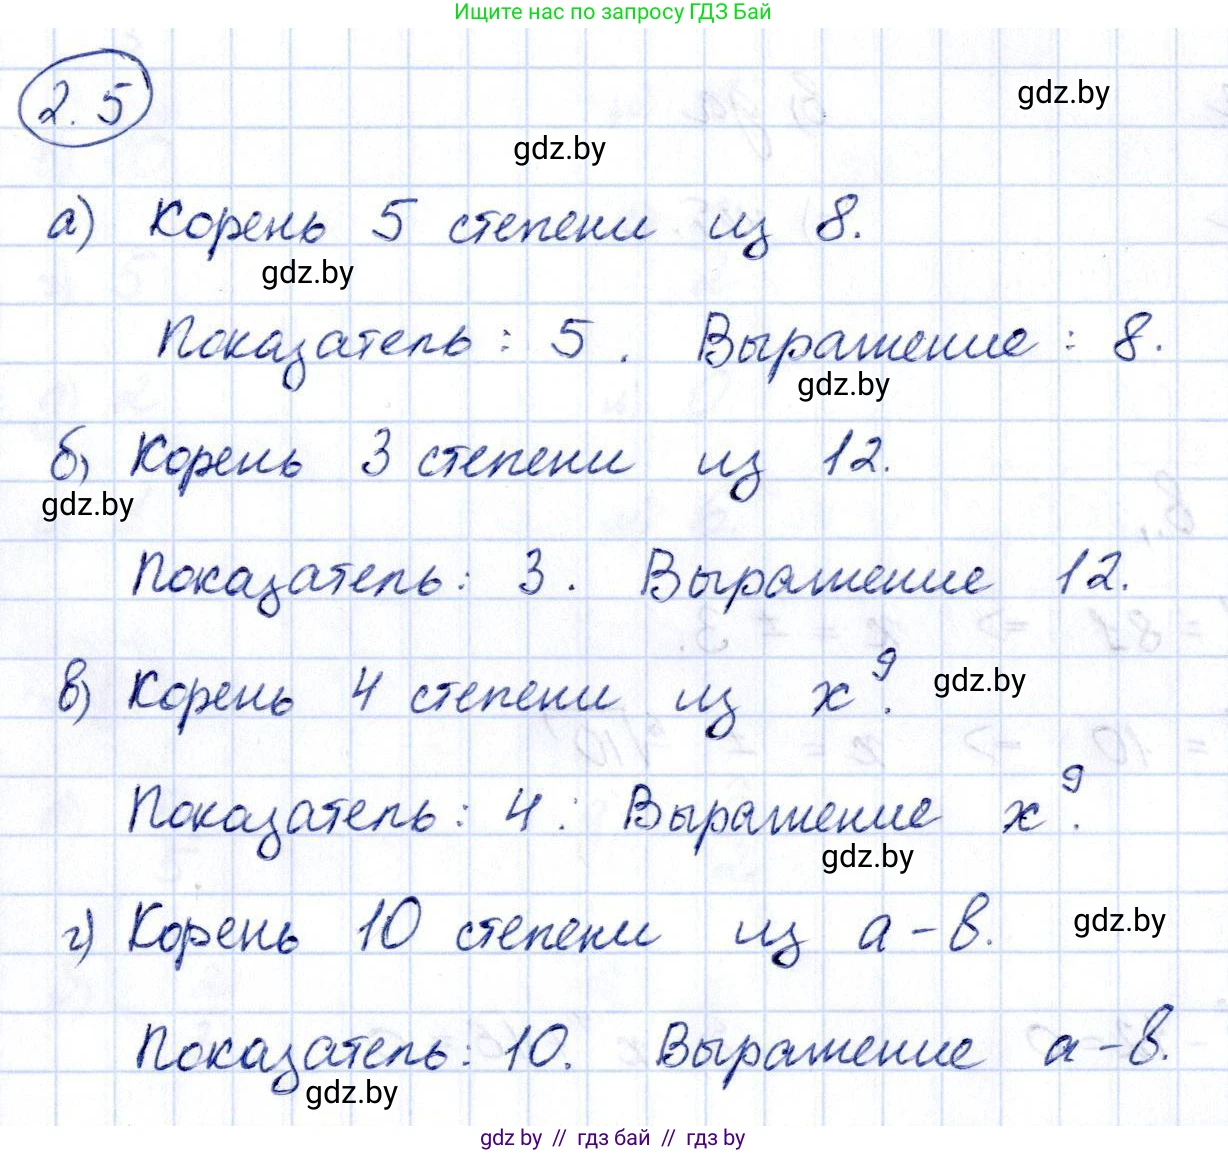 Ищите нас по запросу ГДЗ Бай
2.5
gdz.by
gdz.by
а) Корень 5 степени из 8.
gdz.by
Показатель: 5. Выражение: 8.
gdz.by
б) Корень 3 степени из 12.
gdz.by
Показатель: 3. Выражение 12.
в) Корень 4 степени из x⁹.
gdz.by
Показатель: 4. Выражение x⁹.
gdz.by
г) Корень 10 степени из a-b.
gdz.by
Показатель: 10. Выражение a-b.
gdz.by
gdz by // гдз бай // gdz by